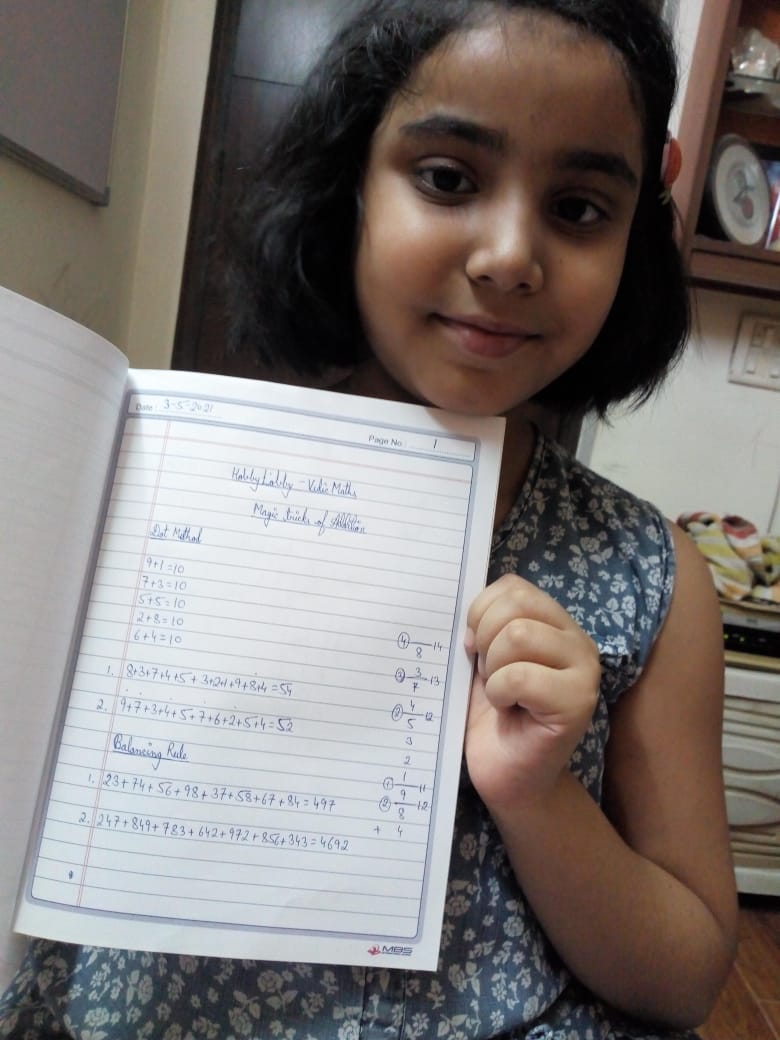 Date : 3-5-2021
Page No. : 1
Hobby Lobby - Vedic Maths
Magic tricks of Addition
Dot Method
9+1=10
7+3=10
5+5=10
2+8=10
6+4=10
1. 8+3+7+4+5+3+2+1+9+8+4=54
2. 9+7+3+4+5+7+6+2+5+4=52
④ 14
8
③ 3 13
7
② 4 12
5
3
2
① 1 11
② 9 12
8
+ 4
Balancing Rule
1. 23+74+56+98+37+58+67+84=497
2. 247+849+783+642+972+856+343=4692
MBS